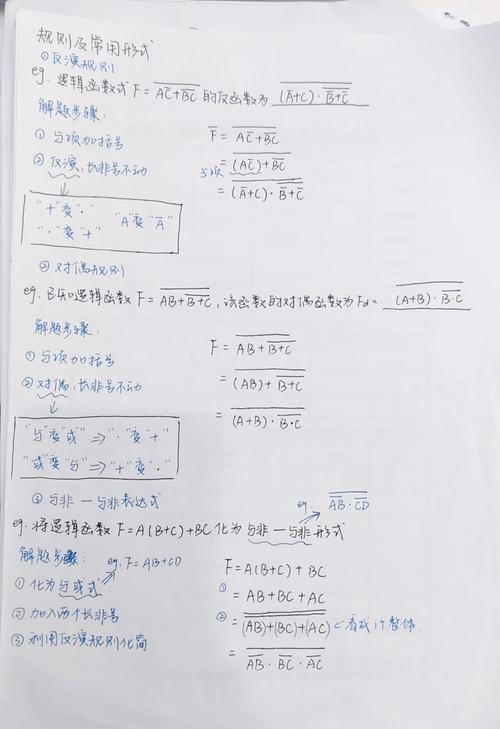 规则及常用形式
①反演规则
eg. 逻辑函数式 F = \overline{A\overline{C}+\overline{BC}} 的反函数为 \overline{(\overline{A}+C)·\overline{\overline{B}+\overline{C}}}
解题步骤:
\overline{F} = \overline{A\overline{C}+\overline{BC}}
① 与项加括号
= \overline{(A\overline{C})+\overline{BC}}
② 反演, 长非号不动
与项
= \overline{(\overline{A}+C)·\overline{\overline{B}+\overline{C}}}
"+"变"·" "A"变"\overline{A}"
"·"变"+"
②对偶规则
eg. 已知逻辑函数 F = \overline{AB+\overline{B+C}}, 该函数的对偶函数为Fd = \overline{(A+B)·\overline{B·C}}
解题步骤:
F = \overline{AB+\overline{B+C}}
① 与项加括号
= \overline{(AB)+\overline{B+C}}
② 对偶, 长非号不动
= \overline{(A+B)·\overline{B·C}}
"与"变"或" ⇒ "·"变"+"
"或"变"与" ⇒ "+"变"·"
③ 与非-与非表达式
eg. \overline{\overline{AB}·\overline{CD}}
eg. 将逻辑函数 F=A(B+C)+BC化为与非-与非形式
解题步骤:
eg. F=AB+CD
F = A(B+C)+BC
① 化为与或式
① = AB+BC+AC
② 加入两个长非号
② = \overline{\overline{(AB)+(BC)+(AC)}} ←看成1个整体.
③ 利用反演规则化简
= \overline{\overline{AB}·\overline{BC}·\overline{AC}}